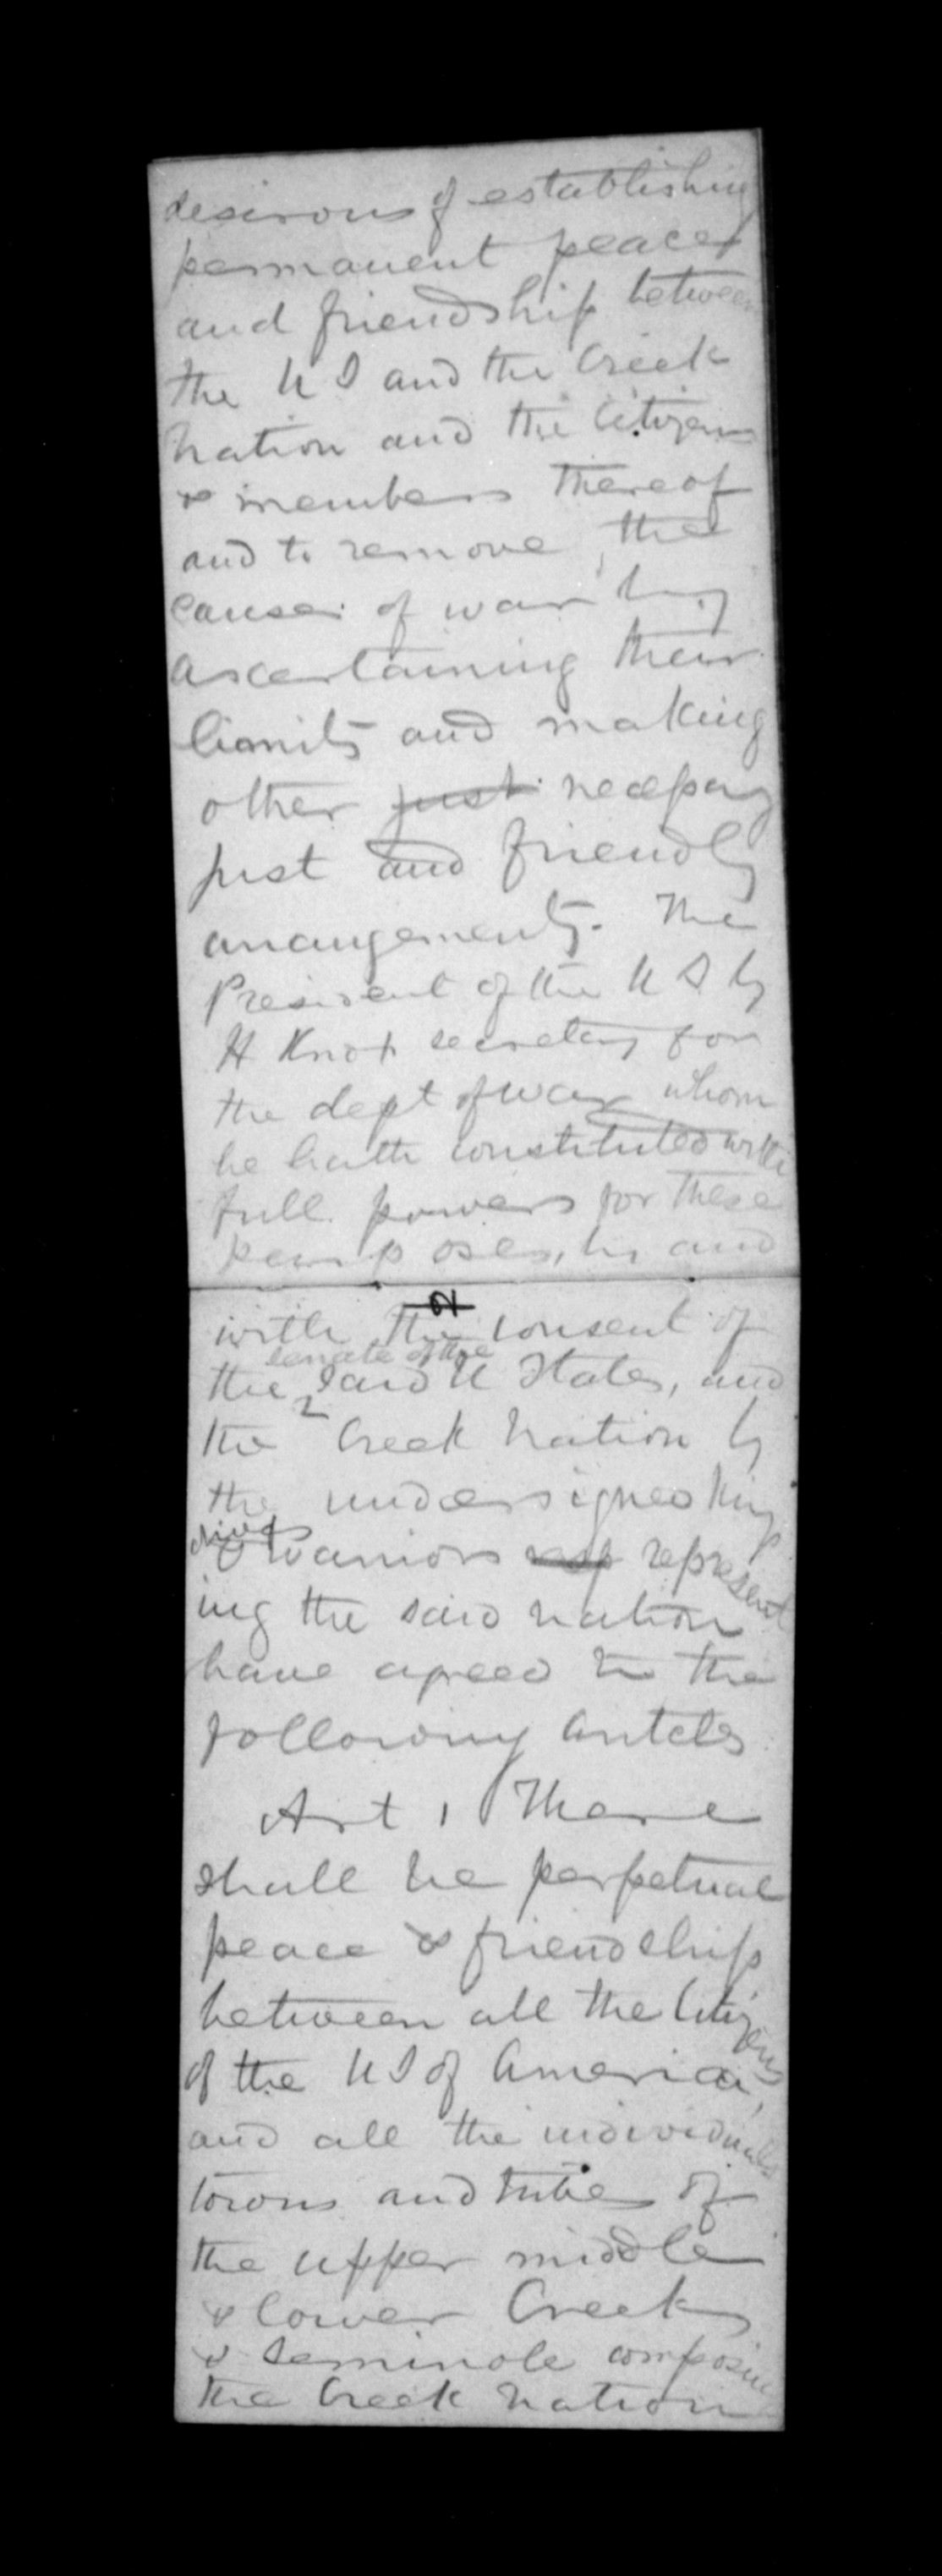 desirous of establishing
permanent peace
and friendship between
the U S and the Creek
Nation and the Citizens
& members thereof
and to remove the
causes of war by
ascertaining their
limits and making
other just necessary
just and friendly
arrangements. The
President of the U S by
H Knox secretary for
the dept of war whom
he hath constituted with
full powers for these
purposes, by and
with the consent of
senate of the
the said U States, and
the Creek Nation by
the undersigned Kings
chiefs
& Warriors rep represent
ing the said nation
have agreed to the
following artcls
Art 1 There
shall be perpetual
peace & friendship
between all the Citizens
of the U S of America,
and all the individuals
towns and tribes of
the upper middle
& lower Creeks
& Seminole composing
the Creek Nation